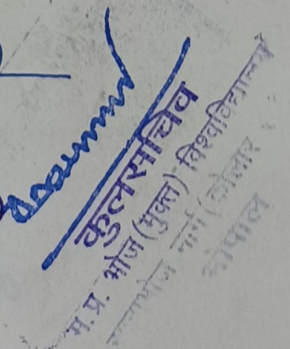 कुलसचिव
म.प्र. भोज (मुक्त) विश्वविद्यालय
मार्ग (कोलार
भोपाल